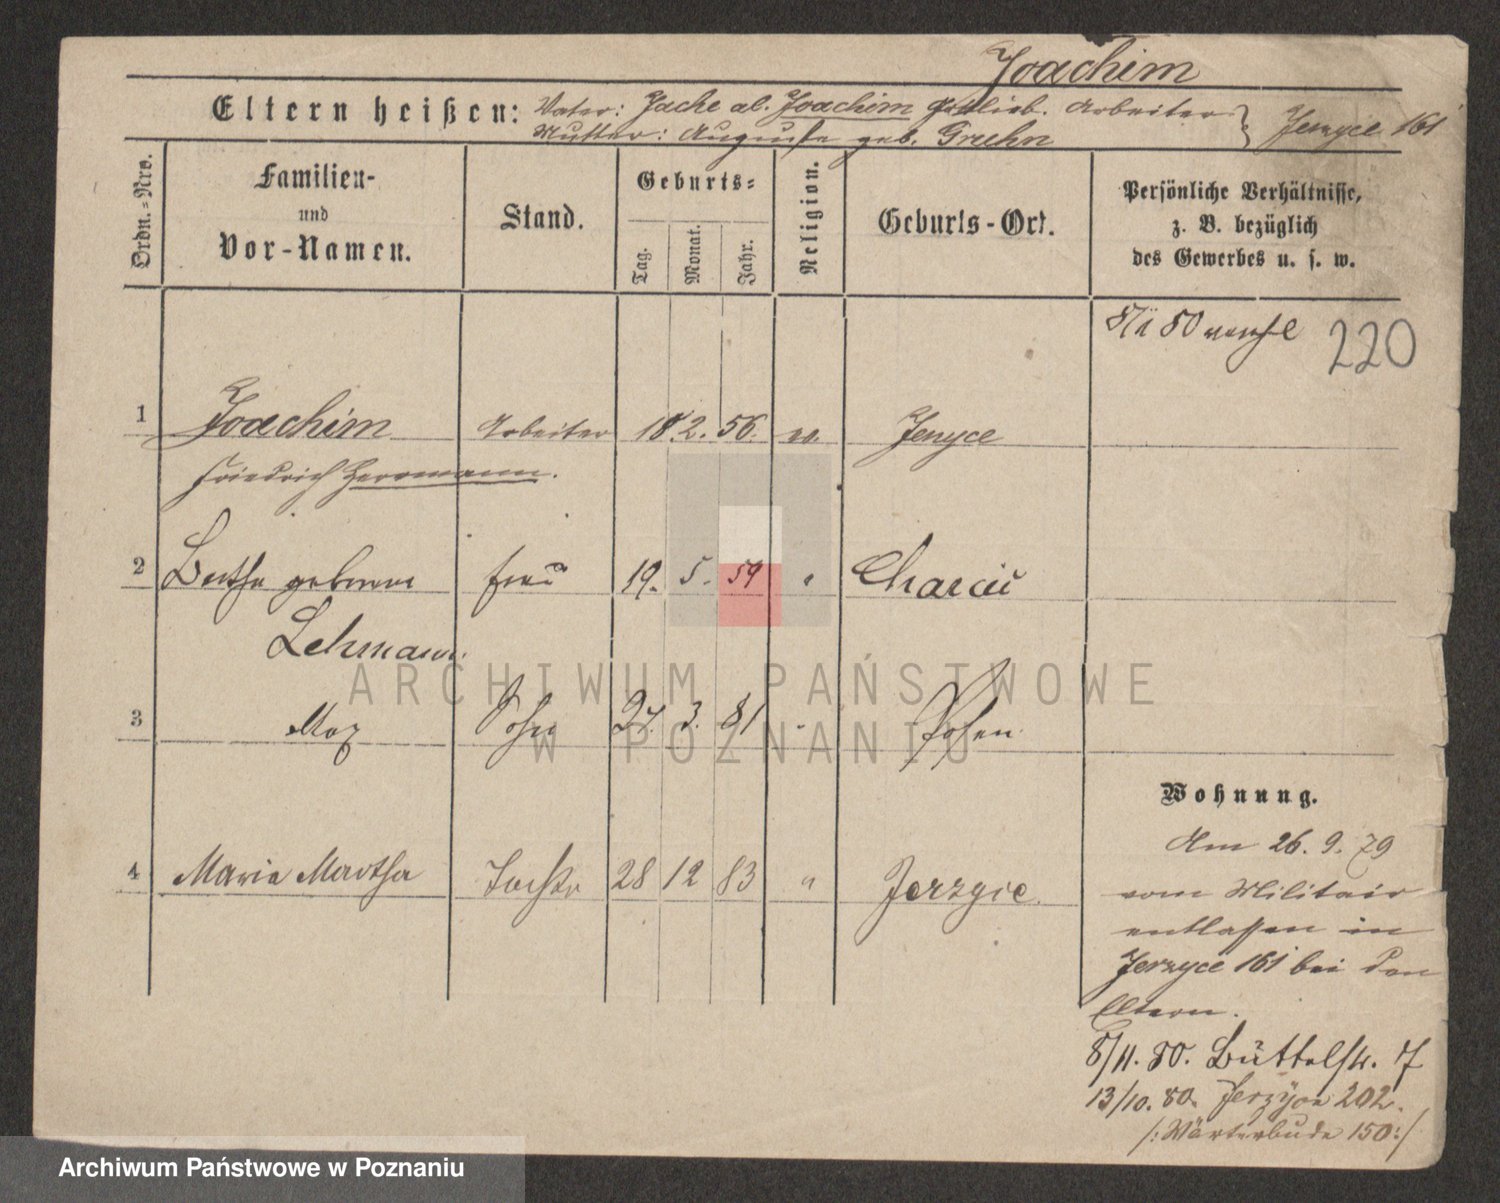 Joachim
Eltern heißen: Vater: Jache al. Joachim Gottlieb. Arbeiter } Jerzyce 161
Mutter: Auguste geb. Grehn
Ordn.-Nro.
Familien-
und
Vor-Namen.
Stand.
Geburts-
Tag.
Monat.
Jahr.
Religion.
Geburts-Ort.
Persönliche Verhältnisse,
z. B. bezüglich
des Gewerbes u. s. w.
80
220
1 Joachim Arbeiter 18 2. 56. ev. Jerzyce
Friedrich Herrmann.
2 Bertha geborene Frau 19. 5. 59 "
Lehmann.
3 Max Sohn 27. 3. 81 " Posen
4 Maria Martha Tochter 28 12 83 " Jerzyce.
Wohnung.
Am 26. 9. 79
vom Militair
entlassen in
Jerzyce 161 bei den
Eltern.
8/11. 80. Büttelstr. 7
13/10. 80. Jerzyce 202.
/: Wärterbude 150 :/
ARCHIWUM PAŃSTWOWE
W POZNANIU
Archiwum Państwowe w Poznaniu